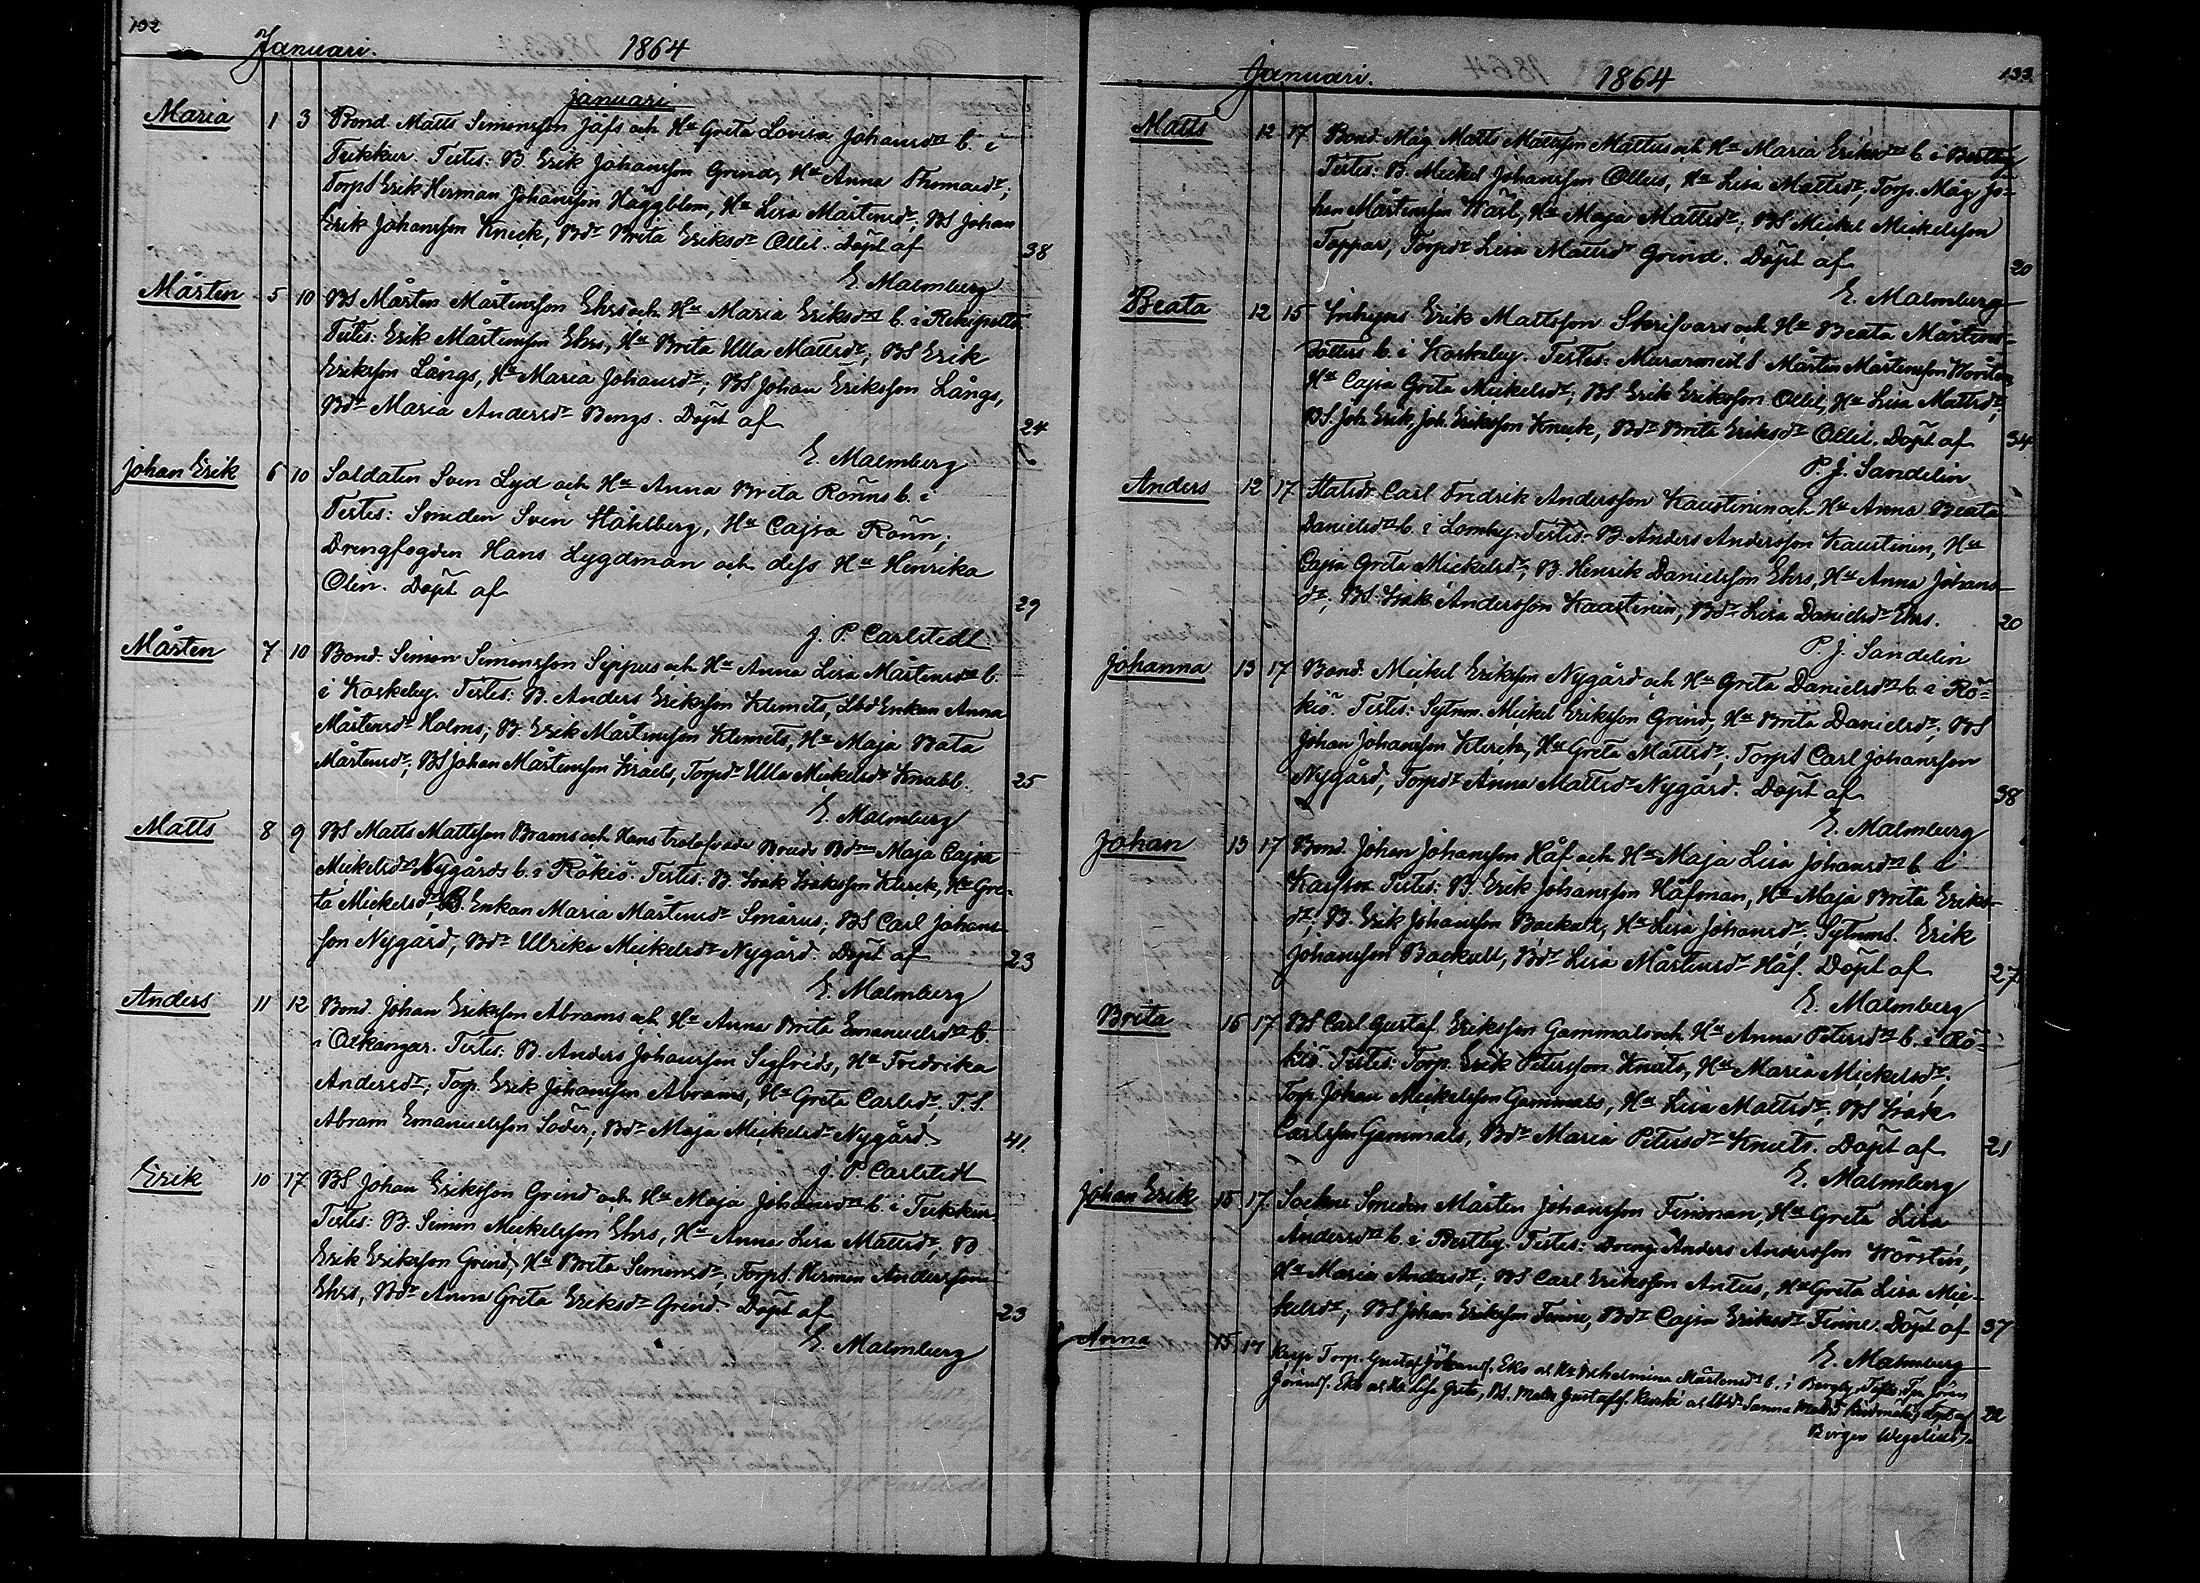 132
Januari. 1864
Januari
Maria 1 3 Bond Matts Simonsson Jåfs och Hu Greta Lovisa Johansdr b. i
Tuckur. Testes: B Erik Johansson Grind, Hu Anna Thomasdr;
Torps Erik Herman Johansson Häggblom, Hu Lisa Mårtensdr; BS Johan
Erik Johansson Knück, Bdr Brita Eriksdr Ollil. Döpt af 38
E. Malmberg
Mårten 5 10 BS Mårten Mårtensson Ehrs och Hu Maria Eriksdr b. i Rekipelto
Testes: Erik Mårtensson Ehrs, Hu Brita Ulla Mattsdr; BS Erik
Eriksson Långs, Hu Maria Johansdr; BS Johan Eriksson Långs,
Bdr Maria Andersdr Bengs. Döpt af 24
E. Malmberg
Johan Erik 6 10 Soldaten Sven Lyd och Hu Anna Brita Rönns b. i
Testes: Smeden Sven Ståhlberg, Hu Cajsa Rönn;
Drengfogden Hans Lygdman och dess Hu Henrika
Olin. Döpt af 29
J. P. Carlstedt
Mårten 7 10 Bond. Simon Simonsson Sippus och Hu Anna Lisa Mårtensdr b.
i Koskeby. Testes: B. Anders Eriksson Klemets, Enkan Anna
Mårtensdr Holms; B. Erik Mårtensson Klemets, Hu Maja Beata
Mårtensdr; BS Johan Mårtensson Israels, Torpdr Ulla Mickelsdr Knabb. 25
E. Malmberg
Matts 8 9 BS Matts Mattsson Brams och Hans trolofvade Brud Bdr Maja Cajsa
Mickelsdr Nygårds b. i Rökiö. Testes: B. Isak Isaksson Klerck, Hu Gre-
ta Mickelsdr; B. Enkan Maria Mårtensdr Smårus; BS Carl Johans-
son Nygård, Bdr Ulrika Mickelsdr Nygård. Döpt af 23
E. Malmberg
Anders 11 12 Bond. Johan Eriksson Abrams och Hu Anna Brita Emanuelsdr b.
i Oxkangar. Testes: B. Anders Johansson Sigfrids, Hu Fredrika
Andersdr; Torp. Erik Johansson Abrams, Hu Greta Carlsdr. T.S.
Abram Emanuelsson Söder; Bdr Maja Mickelsdr Nygård 41.
J. P. Carlstedt
Erik 10 17 BS Johan Eriksson Grind och Hu Maja Johansdr b. i Tuckur
Testes: B. Simon Mickelsson Ehrs, Hu Anna Lisa Mattsdr; B
Erik Eriksson Grind, Hu Brita Simonsdr; Torps. Herman Andersson
Ehrs, Bdr Anna Greta Eriksdr Grind. Döpt af 23
E. Malmberg
133
Januari. 1864
Matts 12 17 Bond. Måg Matts Mattsson Mattus och Hu Maria Eriksdr b. i Bertby
Testes: B. Mickel Johansson Ollus, Hu Lisa Mattsdr, Torp. Måg Jo-
han Mårtensson Wärl, Hu Maja Mattsdr; BS Mickel Mickelsson
Toppar, Torpdr Lisa Mattsdr Grind. Döpt af 20
E. Malmberg
Beata 12 15 Inhyses Erik Mattsson Skrifvars och Hu Beata Mårtens-
dotters b. i Koskeby. Testes: Mårten Mårtensson
Hu Cajsa Greta Mickelsdr; BS Erik Eriksson Ollil, Hu Lisa Mattsdr;
BS. Joh. Erik Joh. Eriksson Knück, Bdr Brita Eriksdr Ollil. Döpt af 34
P. J. Sandelin
Anders 12 17 Carl Fredrik Andersson Kaustinen och Hu Anna Beata
Danielsdr b. i Lomby. Testes: B Anders Andersson Kaustinen, Hu
Cajsa Greta Mickelsdr; B. Henrik Danielsson Ehrs, Hu Anna Johans-
dr; BS. Isak Andersson Kaustinen, Bdr Lisa Danielsdr Ehrs. 20
P. J. Sandelin
Johanna 13 17 Bond. Mickel Eriksson Nygård och Hu Greta Danielsdr b. i Rö-
kiö. Testes: Sytnm. Mickel Eriksson Grind, Hu Brita Danielsdr; BS
Johan Johansson Klerck, Hu Greta Mattsdr; Torps Carl Johansson
Nygård, Torpdr Anna Mattsdr Nygård. Döpt af 38
E. Malmberg
Johan 13 17 Bond. Johan Johansson Håf och Hu Maja Lisa Johansdr b. i
Karfsor. Testes: B. Erik Johansson Håfman, Hu Maja Brita Eriks-
dr; B. Erik Johansson Backull, Hu Lisa Johansdr; Sytnms. Erik
Johansson Backull, Bdr Lisa Mårtensdr Håf. Döpt af 27
E. Malmberg
Brita 16 17 BS Carl Gustaf Eriksson Gammals och Hu Anna Petersdr b. i Rö-
kiö. Testes: Torp. Erik Petersson Knuts, Hu Maria Mickelsdr;
Torp Johan Mickelsson Gammals, Hu Lisa Mattsdr; BS Isak
Carlsson Gammals, Bdr Maria Petersdr Knuts. Döpt af 21
E. Malmberg
Johan Erik 15 17. Sockne Smeden Mårten Johansson Finnman, Hu Greta Lisa
Andersdr b. i Bertby. Testes: Dreng Anders Andersson Wörstén,
Hu Maria Andersdr; BS Carl Eriksson Antus, Hu Greta Lisa Mic-
kelsdr; BS Johan Eriksson Finne, Bdr Cajsa Eriksdr Finne. Döpt af 37
E. Malmberg
Anna 15 17 Torp. Gustaf Johanss. Eko o. Hu Wilhelmina Mårtensdr b. i Bergby. Testes:
Jöranss. Eko o. Hu Lisa Greta, BS. Matts Gustafss. o. Sanna Mattsdr döpt af 22
Birger Wegelius